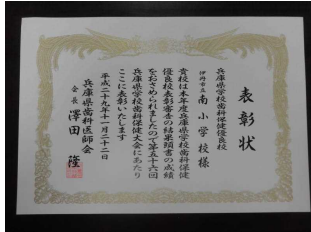 表彰状
兵庫県学校歯科保健優良校
伊丹市立南小学校様
貴校は本年度兵庫県学校歯科保健
優良校表彰審査の結果頭書の成績
をおさめられましたので第五十六回
兵庫県学校歯科保健大会にあたり
ここに表彰いたします
平成二十九年十一月二十二日
兵庫県歯科医師会
会長 澤田 隆